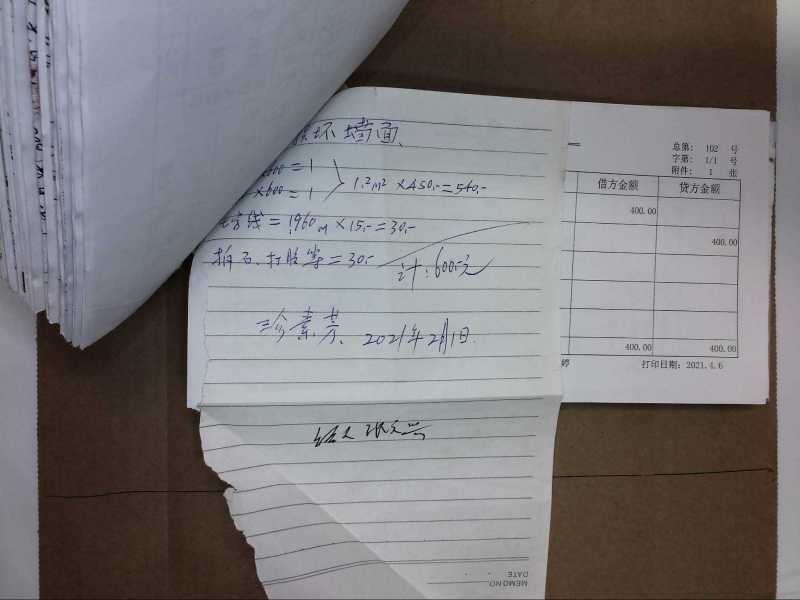 坏墙面、
=1
×600=1
1.2m² ×450.-=540.-
线=1.960m×15.-=30.-
拆石、打胶等=30.-
计:600.-元
素芳、2021年2月1日.
总第: 102 号
字第: 1/1 号
附件: 1 张
借方金额 贷方金额
400.00
400.00
400.00 400.00
婷 打印日期: 2021.4.6
MEMO NO
DATE